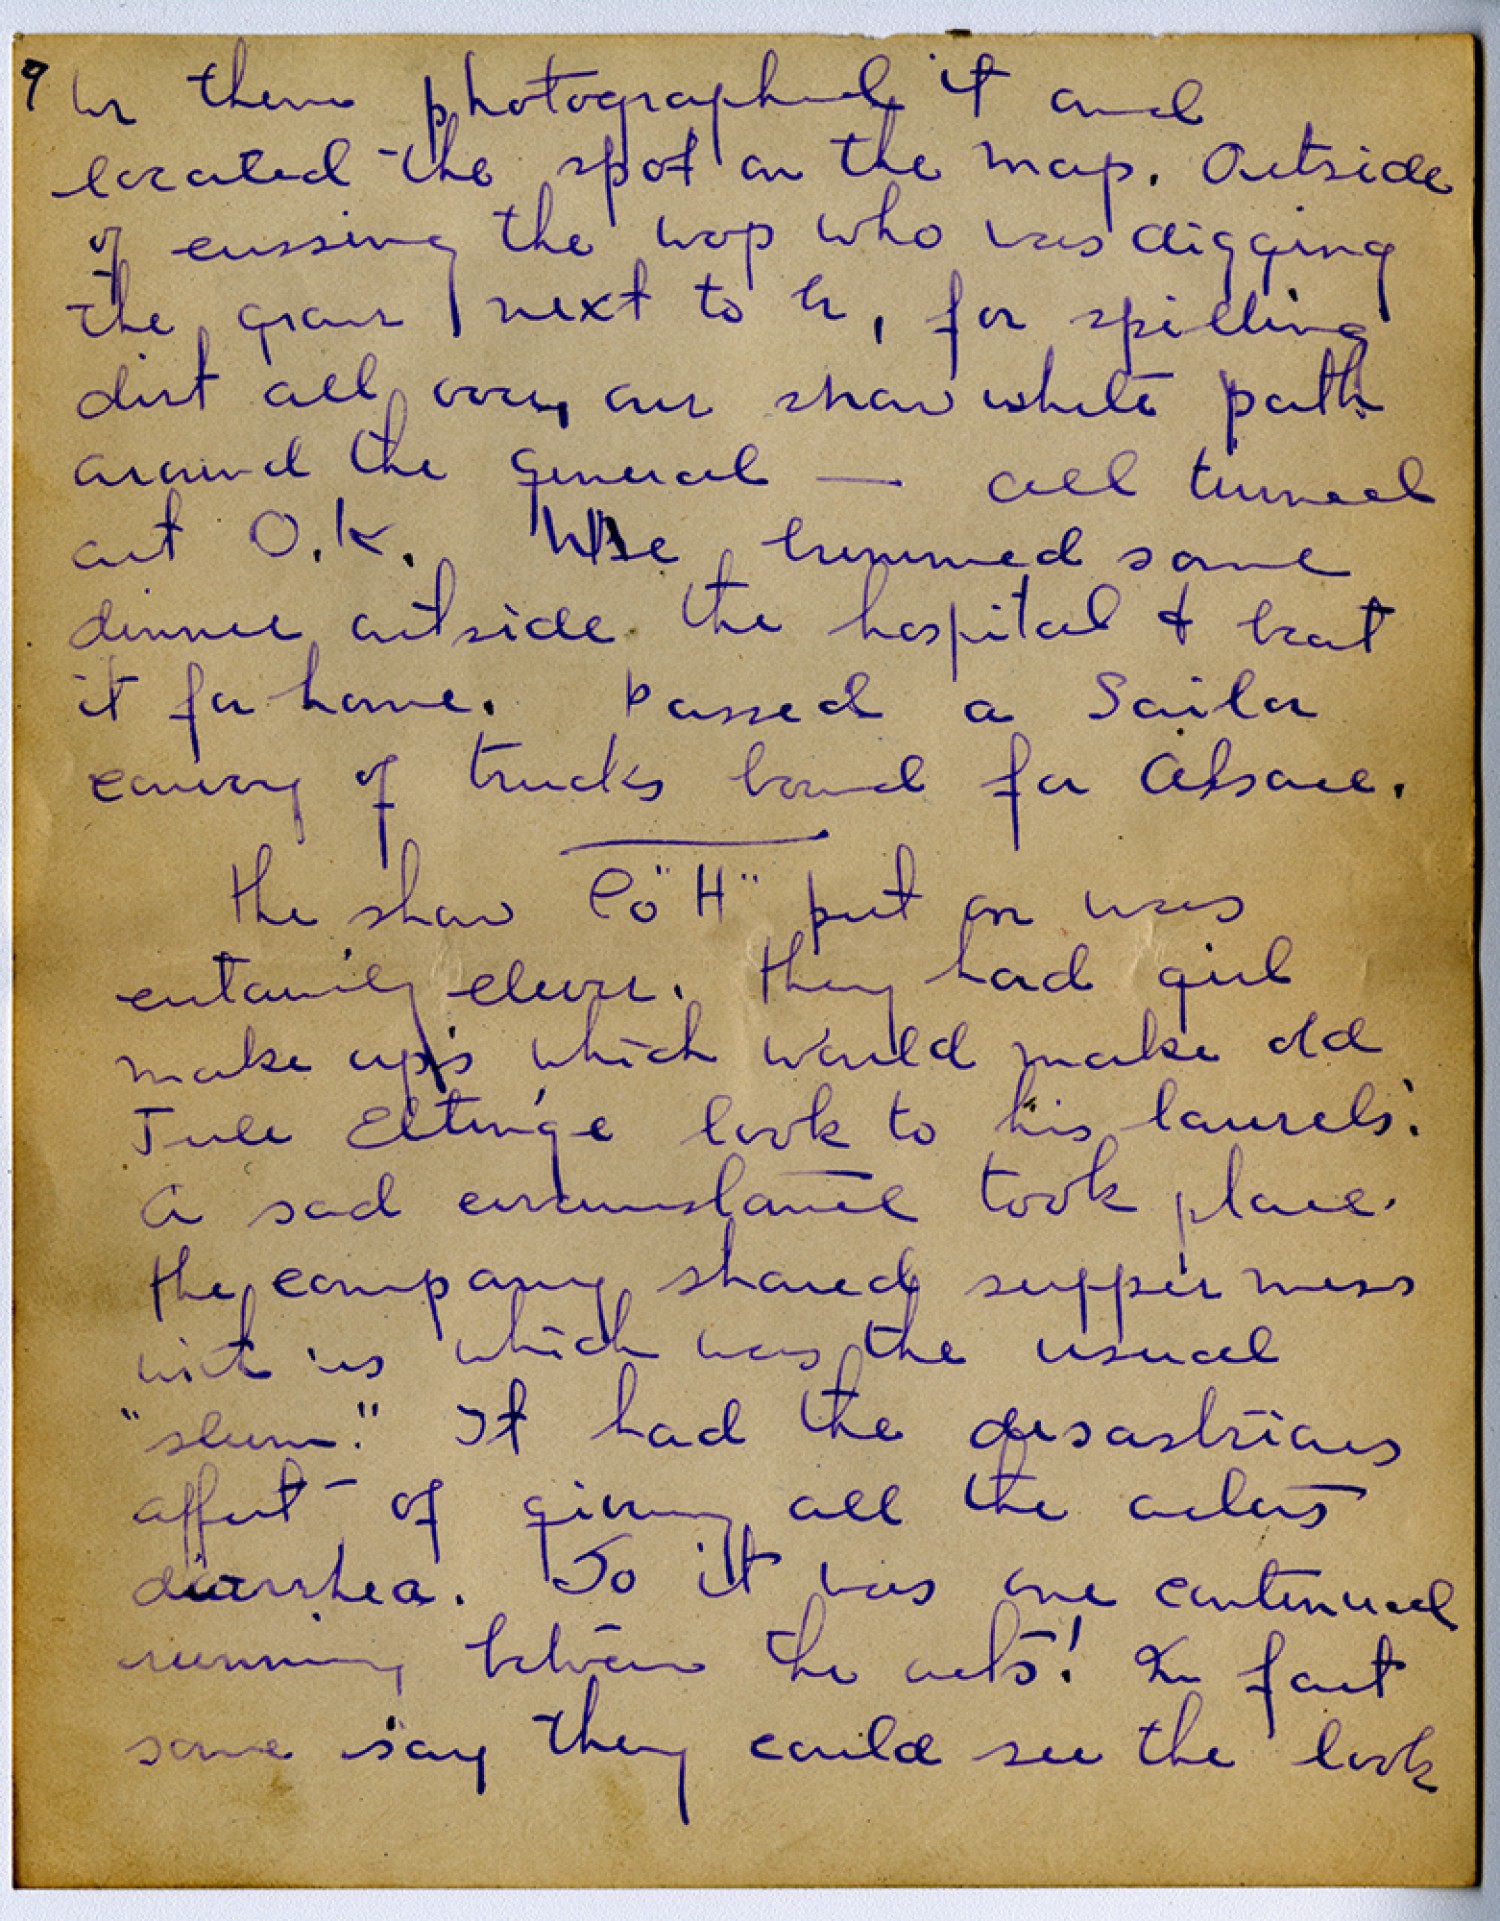 9 for them photographed it and
located the spot on the map. Outside
of cussing the wop who was digging
the grave next to us, for spilling
dirt all over our snow white path
around the General — all turned
out O.K. We bummed some
dinner outside the hospital & beat
it for home. Passed a Sailor
convoy of trucks bound for Alsace.
The show Co "H" put on was
certainly clever. They had girl
make ups which would make old
Jule Eltinge look to his laurels.
A sad circumstance took place.
The company shared supper mess
with us which was the usual
"slum." It had the desastrious
affect - of giving all the actors
diarrhea. So it was one continued
running between the acts! In fact
some say they could see the look